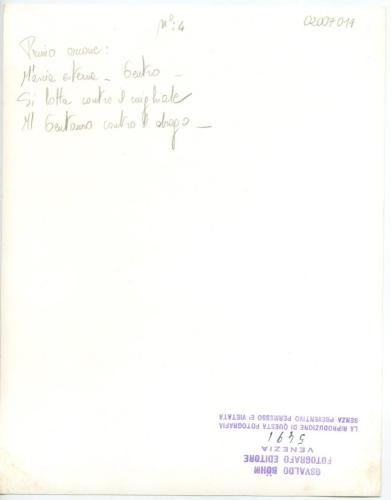 N°: 4
02007011
Primo ordine:
Marcia esterna - Centro -
Si lotta contro il cinghiale
Il Centauro contro il drago -
OSVALDO BÖHM
FOTOGRAFO EDITORE
VENEZIA
5491
LA RIPRODUZIONE DI QUESTA FOTOGRAFIA
SENZA PREVENTIVO PERMESSO E' VIETATA